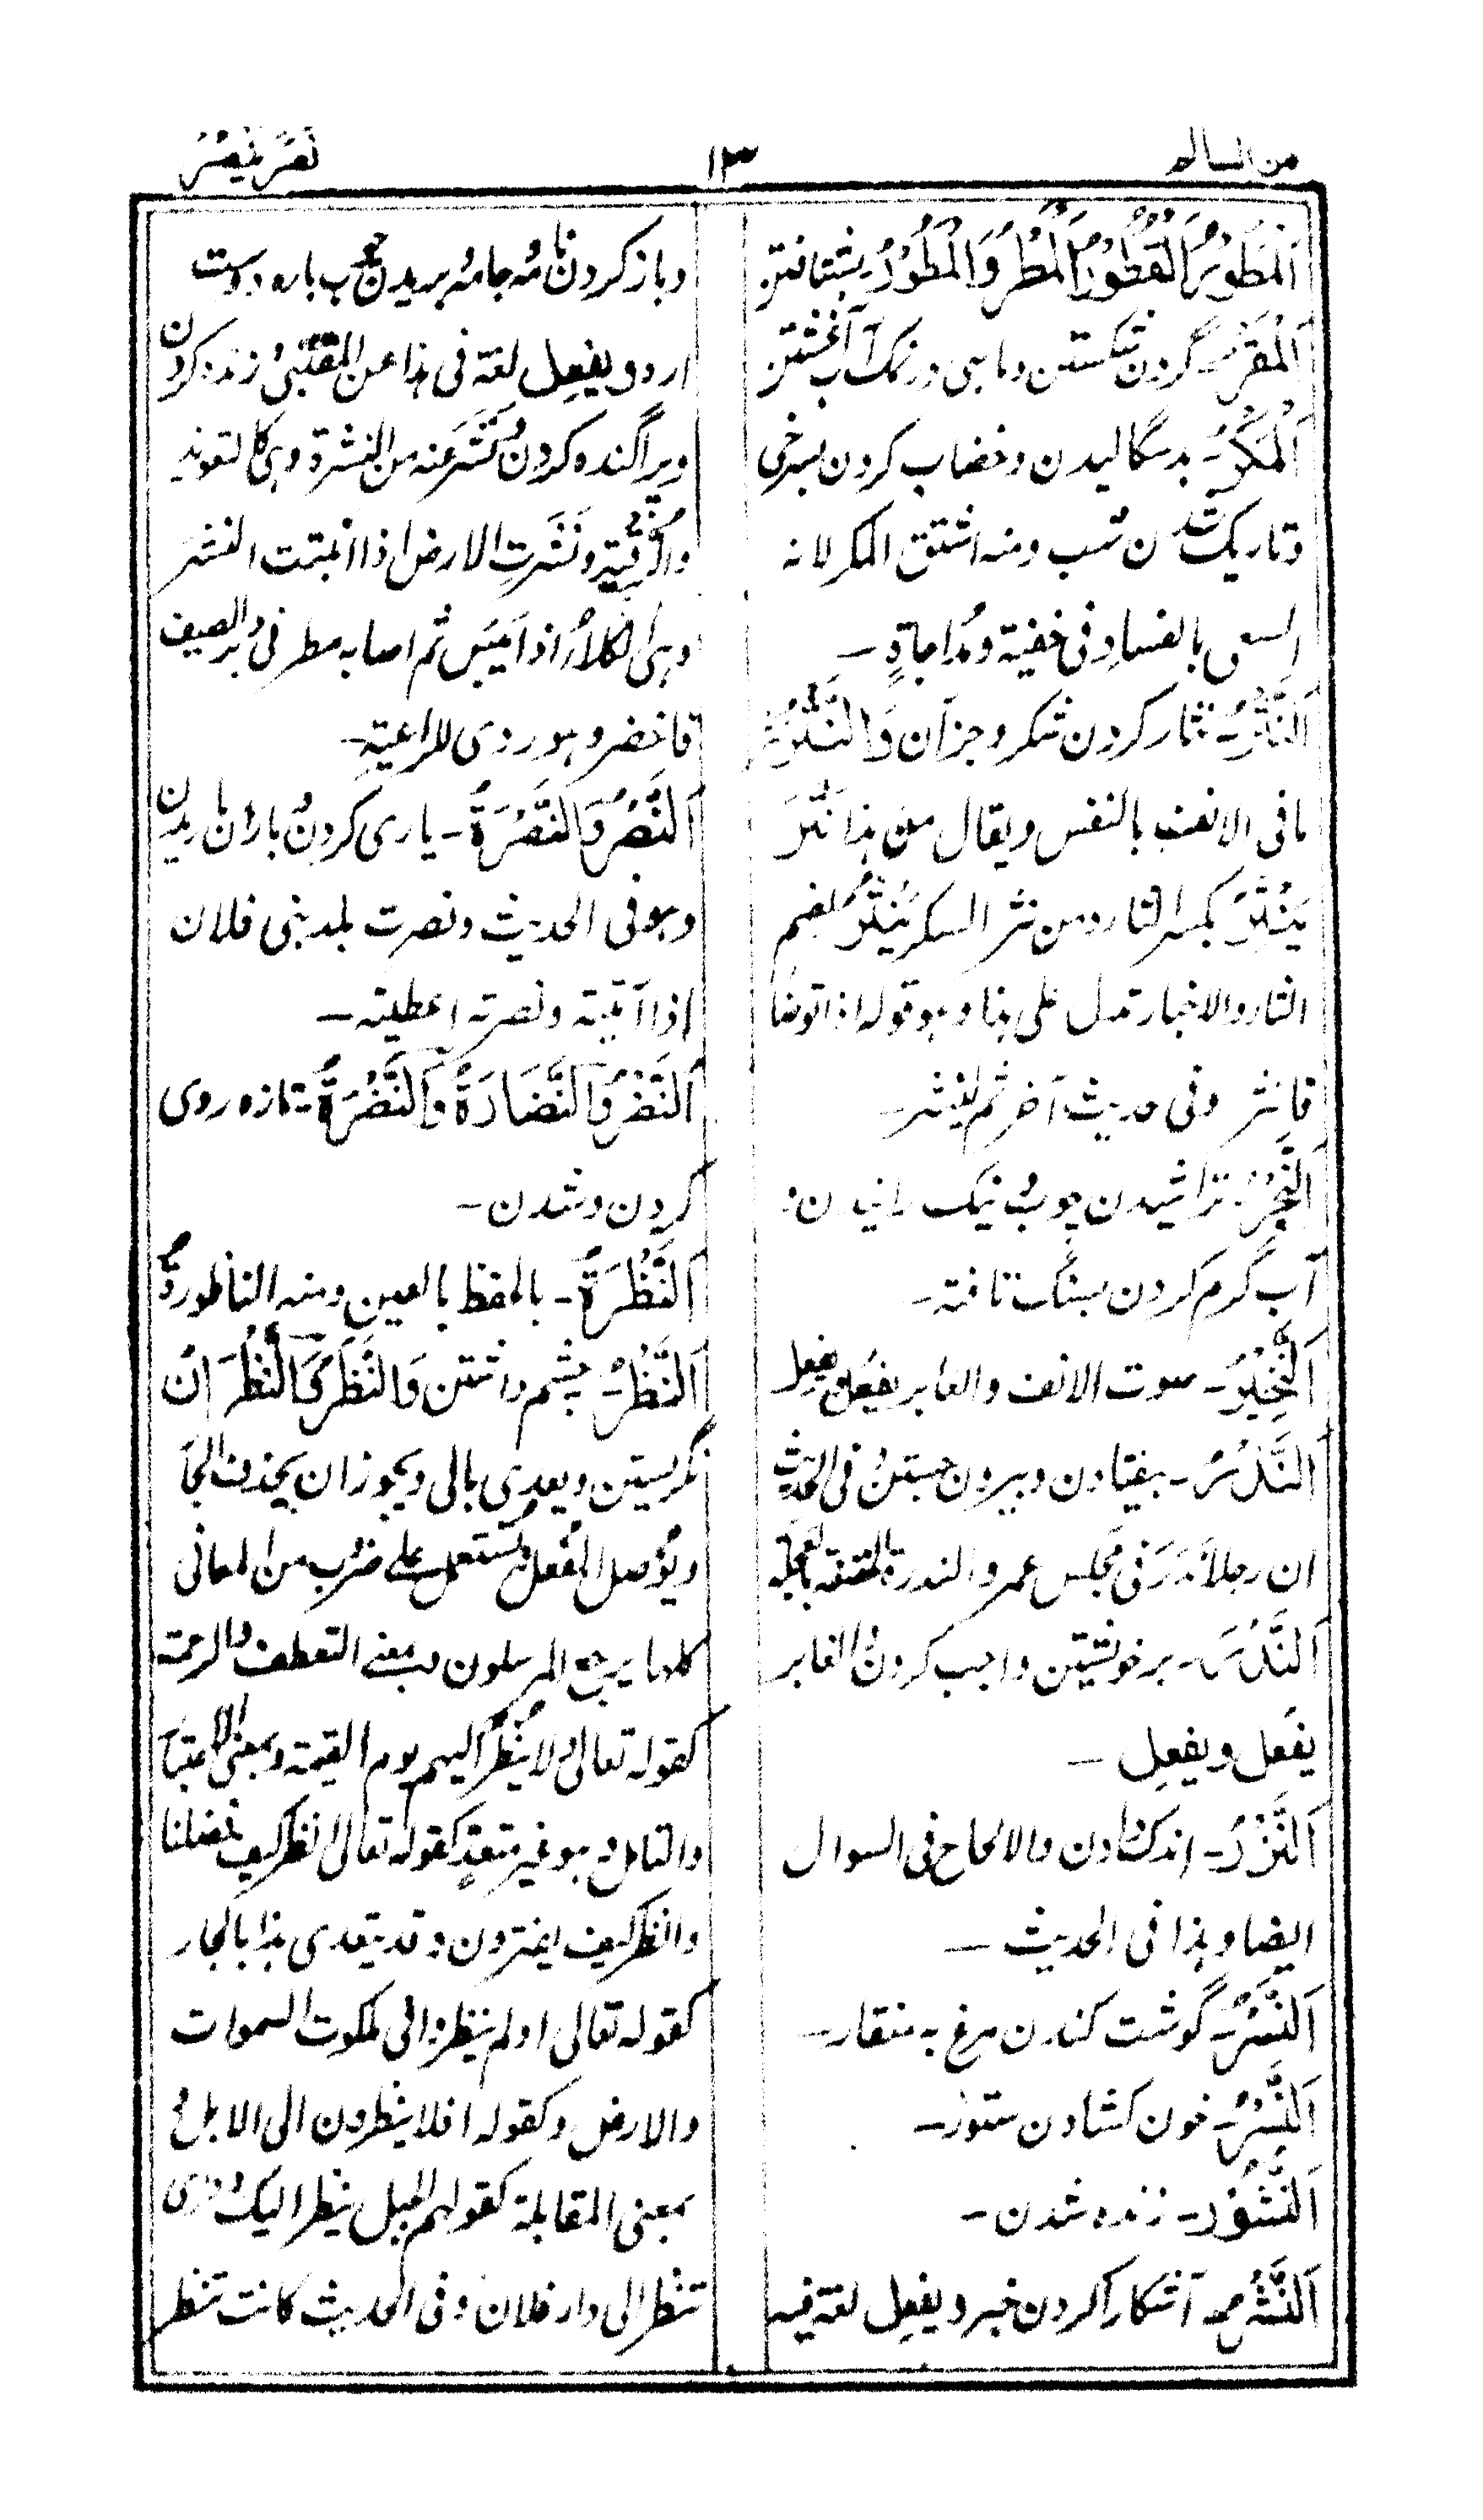 من السالم
١٣
نَصَرَ يَنْصُرُ
اَلْمُطُوْرُ اَلْقُطُوْرُ اَلْمَطْرُ وَالْمُطُوْرُ۔ بشتافتن
اَلْمَقْرُ۔ گردن شکستن و ماہی در نمک آب آغشتن
اَلْمَكْرُ۔ بد سگالیدن و خضاب کردن بسرخی
و تاریک شدن شب و منہ اشتق المکر لانہ
السعی بالفساد فی خفیة و مداجاةٍ۔
اَلنَّثْرُ۔ نثار کردن شکر و جز آن وَالنَّثْرُ
ما فی الانف بالنفس و یقال من ہذا نَثَرَ
یَنْثِرُ بکسر الثاء و من نثر السکر یَنْثُرُ بضم
الثاء و الاخبار تدل علی ہذا و ہو قولہ اذا توضأ
فانثر و فی حدیث آخر ثم لینثر۔
اَلنَّجْرُ۔ تراشیدن چوب و نیک راندن و
آب گرم کردن بسنگ تافتہ۔
اَلنَّخِيْرُ۔ صوت الانف و الغابر یفعُل و یفعِل
اَلنَّدْرُ۔ بیفتادن و بیرون جستن و فی الحدیث
ان رجلا نَدَرَ فی مجلس عمر و الندرة الخضفة بالعجلة
اَلنَّذْرُ۔ بر خویشتن واجب کردن و الغابر
یفعُل و یفعِل۔
اَلنَّزْرُ۔ اندک دادن و الالحاح فی السوال
ایضا و ہذا فی الحدیث۔
اَلنَّسْرُ۔ گوشت کندن مرغ بہ منقار۔
اَلنَّسْرُ۔ خون کشادن ستور۔
اَلنُّشُوْرُ۔ زندہ شدن۔
اَلنَّشْرُ۔ آشکارا کردن خبر و یفعِل لغة فیہ
و باز کردن نامہ و جامہ و بریدن چوب بارہ دوست
ارہ و یفعِل لغة فی ہذا عن القتبی و زندہ کردن
و پراگندہ کردن و نَشَرَ عنہ من النشرة و ہی کالتعویذ
و الرقیة و نَشَرَتِ الارض اذا انبتت النشر
و ہی الکلأ اذا یَبِسَ ثم اصابہ مطر فی دبر الصیف
فاخضر و ہو ردی للراعیة۔
اَلنَّصْرُ وَالنُّصْرَةُ۔ یاری کردن و باران باریدن
و ہو فی الحدیث و نصرت بلد بنی فلان
اذا آتیتہ و نصرتہ اعطیتہ۔
اَلنَّضْرُ وَالنَّضَارَةُ وَالنَّضْرَةُ۔ تازہ روی
کردن و شدن۔
اَلنَّظْرَةُ۔ بالحفظ بالعین و منہ الناظورةُ
اَلنَّظْرُ۔ چشم داشتن وَالنَّظَرُ وَالنَّظَرَانُ
نگریستن و یعدی بالی و یجوز ان یحذف الجا
و یوصل الفعل و یستعمل علی ضرب من المعانی
کلہا یرجع المرسلون بمعنی التعطف و الرحمة
کقولہ تعالی وَلا يَنْظُرُ اِلیہم یوم القیمة و بمعنی الاعتبا
و التامل و ہو غیر متعدٍ کقولہ تعالی انظر کیف فضلنا
و انظر کیف یفترون و قد یتعدی ہذا بالجار
کقولہ تعالی اولم ینظروا فی ملکوت السموات
و الارض و کقولہ افلا ینظرون الی الابل و
بمعنی المقابلة کقولہم الجبل ینظر الیک و داری
تنظر الی دار فلان و فی الحدیث کانت تنظر